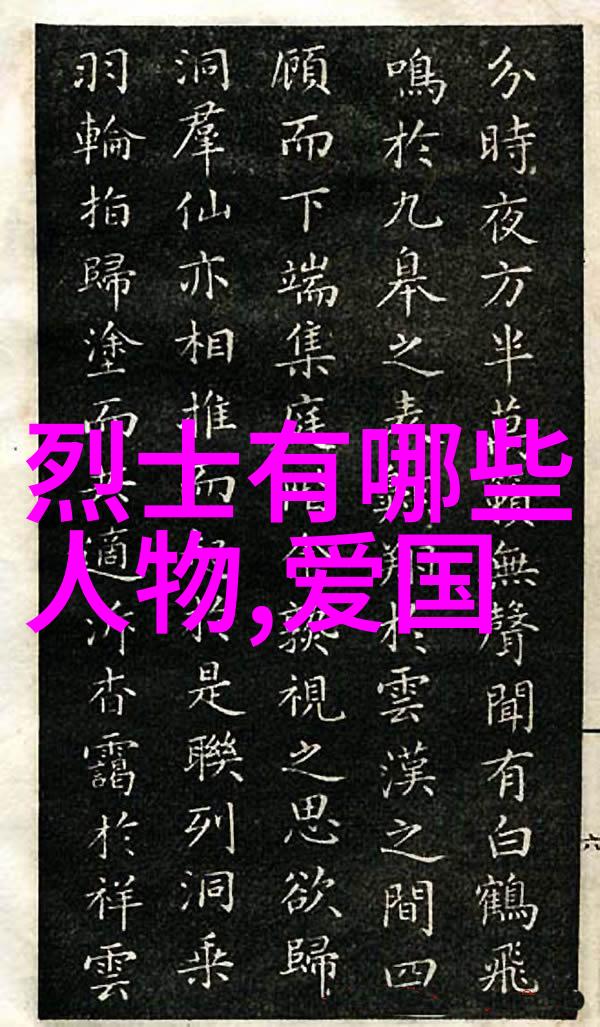 烈士有哪些
人物,爱国
分時夜方半萬籟無聲聞有白鶴飛
鳴於九皋之表翔於雲漢之間四
顧而下端集庭視之思欲歸
洞羣仙亦相推而於是聯列洞乘
羽輪拍歸塗而適泝杳靄於祥雲
六